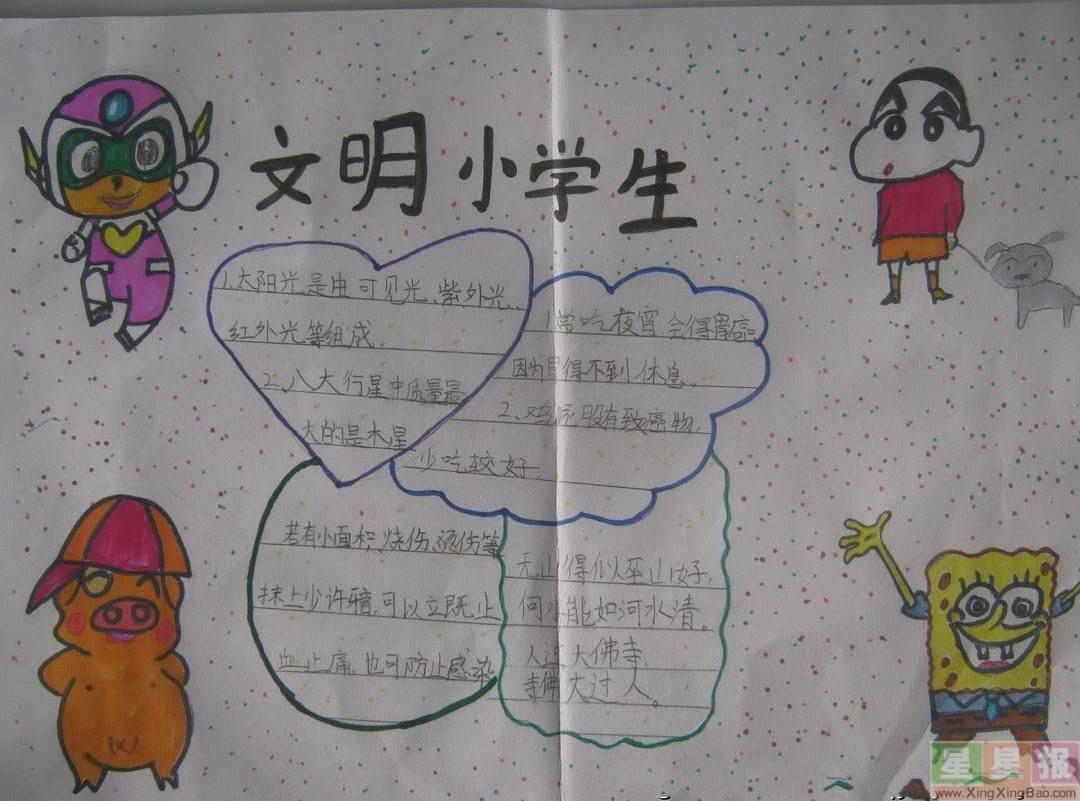 文明小学生
1、太阳光是由可见光、紫外光、
红外光等组成.
2、八大行星中质量最
大的是木星
1常吃夜宵会得胃癌
因为胃得不到休息。
2、鸡屁股有致癌物,
少吃较好
若有小面积烧伤、烫伤等
抹上少许牙膏可以立既止
血止痛,也可防止感染
无山得似巫山好,
何水能如河水清。
人过大佛寺,
寺佛大过人。
星星报
www.XingXingBao.com